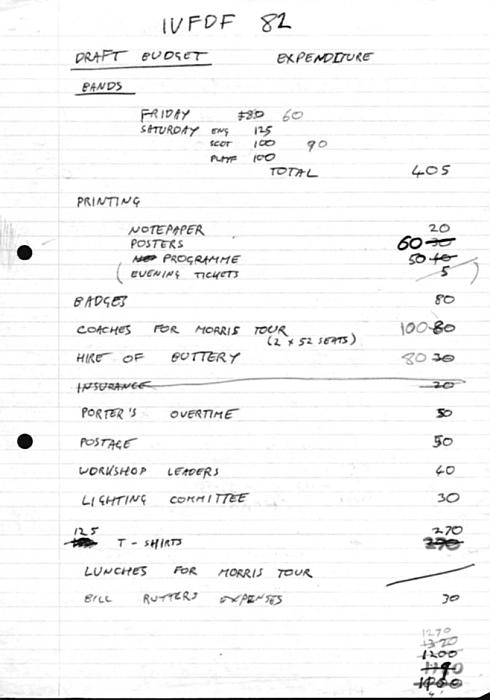 IVFDF 82
DRAFT BUDGET EXPENDITURE
BANDS
FRIDAY £80 60
SATURDAY ENG 125
SCOT 100 90
PLAYF 100
TOTAL 405
PRINTING
NOTEPAPER 20
POSTERS 60 30
PROGRAMME 50 40
(EVENING TICKETS 5)
BADGES 80
COACHES FOR MORRIS TOUR 100 80
(2 x 52 SEATS)
HIRE OF BUTTERY 80 30
INSURANCE 20
PORTER'S OVERTIME 50
POSTAGE 50
WORKSHOP LEADERS 40
LIGHTING COMMITTEE 30
125 270
T-SHIRTS 270
LUNCHES FOR MORRIS TOUR
BILL RUTTERS EXPENSES 30
1270
1320
1200